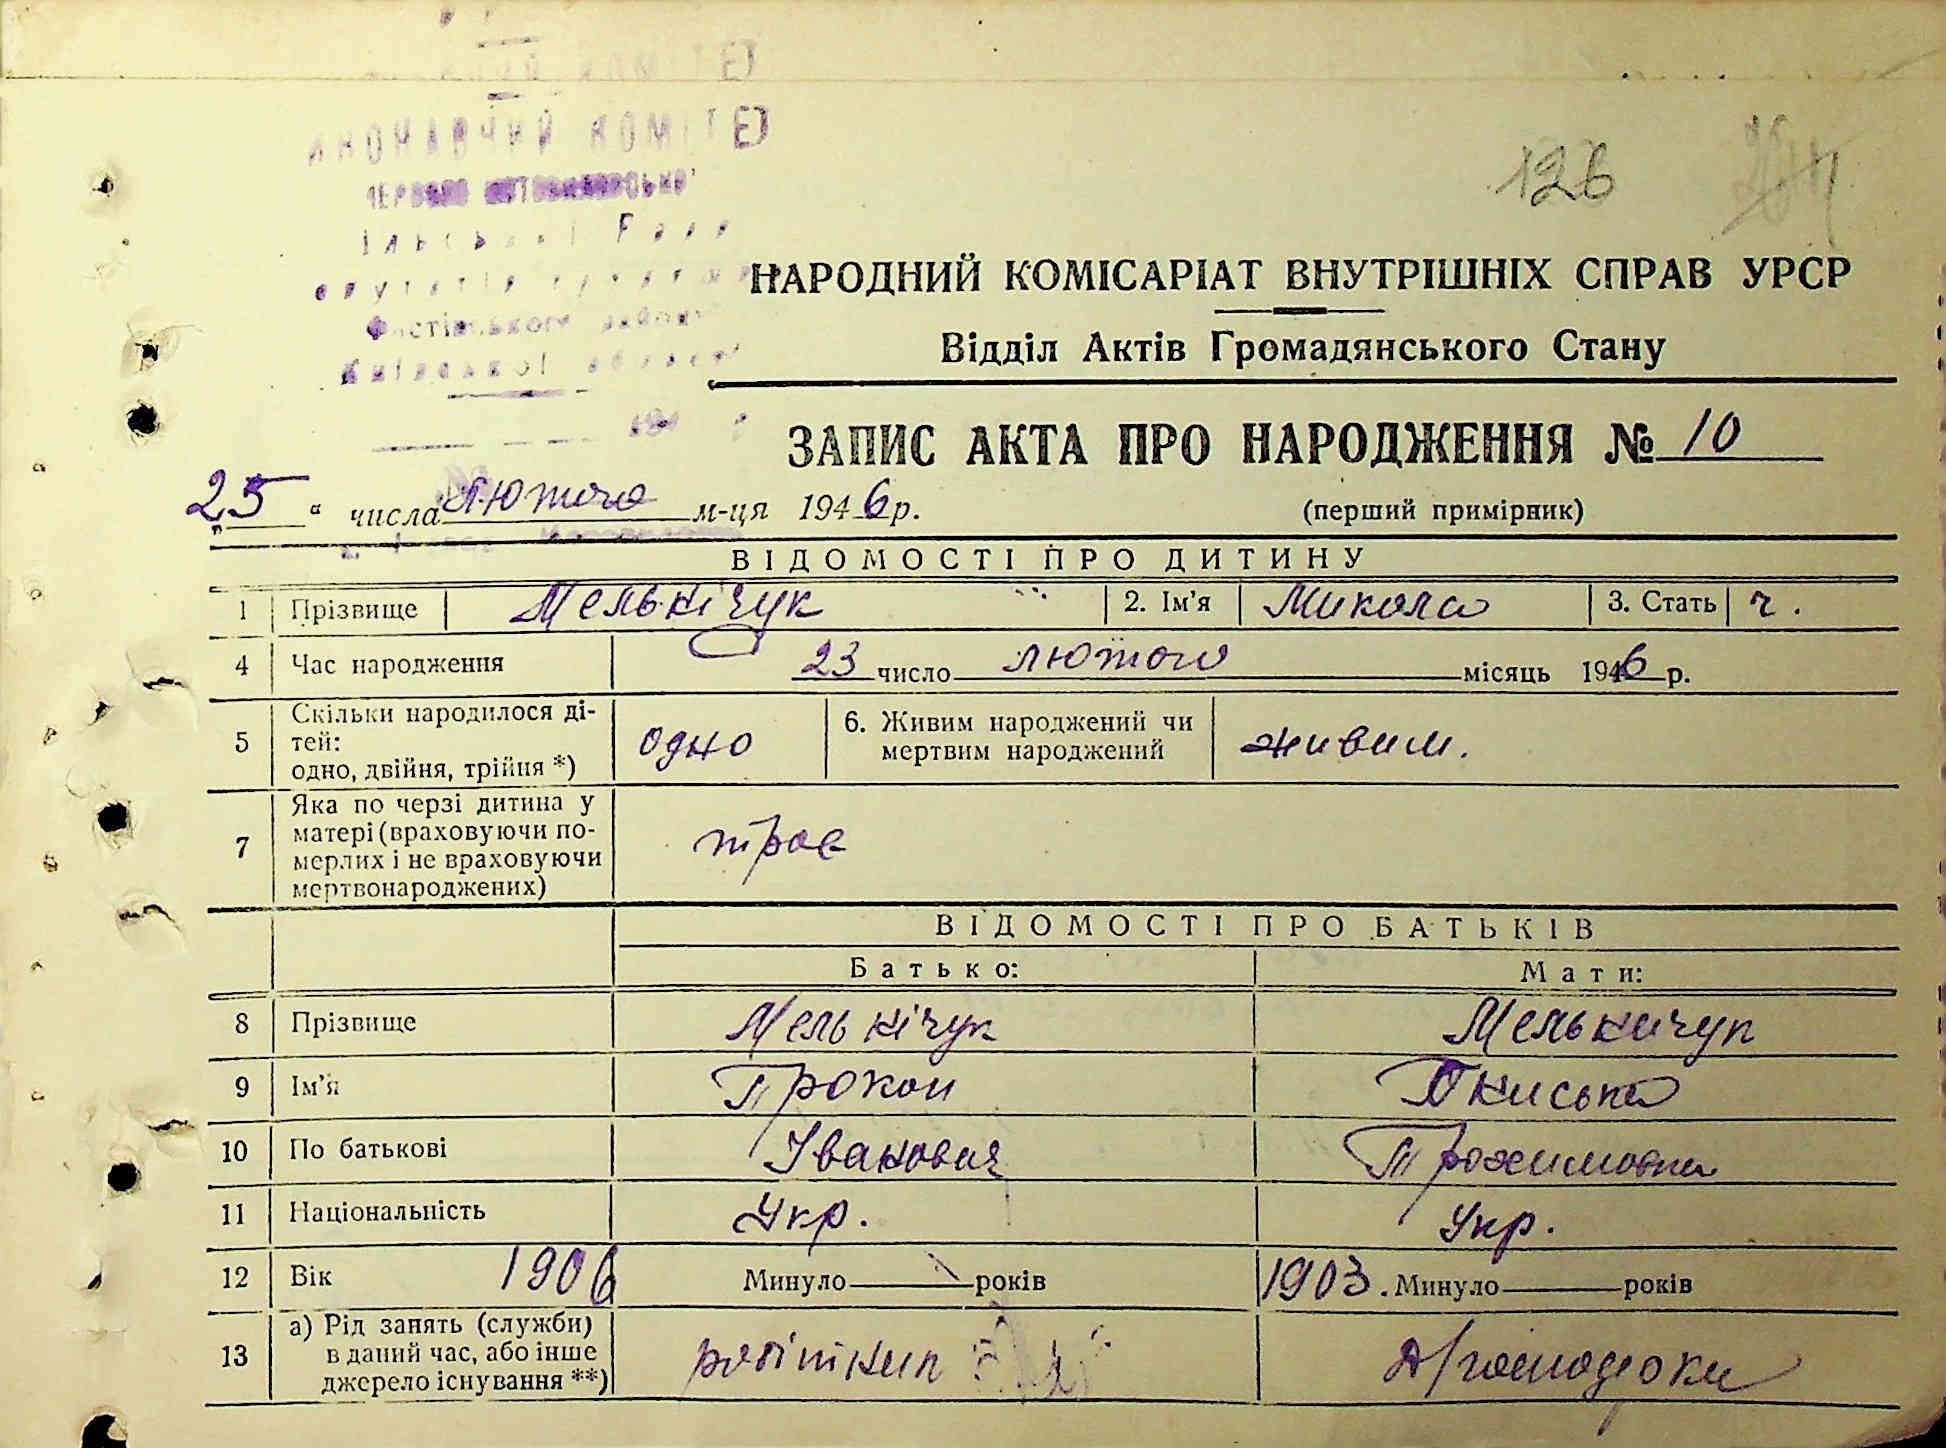 ВИКОНАВЧИЙ КОМІТЕТ
Фастівського району
Київської області
126
НАРОДНИЙ КОМІСАРІАТ ВНУТРІШНІХ СПРАВ УРСР
Відділ Актів Громадянського Стану
ЗАПИС АКТА ПРО НАРОДЖЕННЯ № 10
„25“ числа лютого м-ця 1946 р. (перший примірник)
ВІДОМОСТІ ПРО ДИТИНУ
1 Прізвище Мельнічук 2. Ім'я Микола 3. Стать ч.
4 Час народження 23 число лютого місяць 1946 р.
5 Скільки народилося ді-
тей:
одно, двійня, трійня *) одно 6. Живим народжений чи
мертвим народжений живим.
7 Яка по черзі дитина у
матері (враховуючи по-
мерлих і не враховуючи
мертвонароджених) троє
ВІДОМОСТІ ПРО БАТЬКІВ
Батько: Мати:
8 Прізвище Мельнічук Мельничук
9 Ім'я Прокоп
10 По батькові Іванович Трохимовна
11 Національність Укр. Укр.
12 Вік 1906 Минуло років 1903. Минуло років
13 а) Рід занять (служби)
в даний час, або інше
джерело існування **) робітник